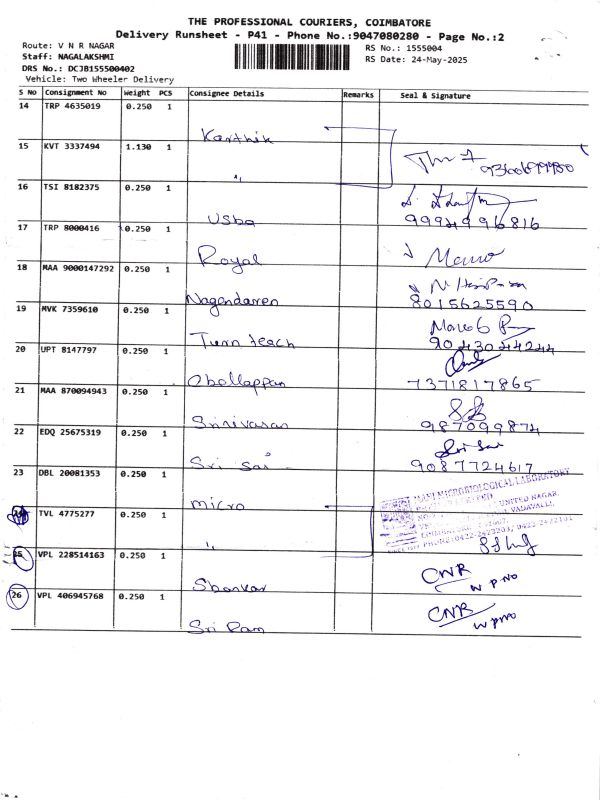 THE PROFESSIONAL COURIERS, COIMBATORE
Delivery Runsheet - P41 - Phone No.:9047080280 - Page No.:2
Route: V N R NAGAR
RS No.: 1555004
Staff: NAGALAKSHMI
RS Date: 24-May-2025
DRS No.: DCJB155500402
Vehicle: Two Wheeler Delivery
S No Consignment No Weight PCS Consignee Details Remarks Seal & Signature
14 TRP 4635019 0.250 1
Karthik
15 KVT 3337494 1.130 1
"
16 TSI 8182375 0.250 1
Usba 9994996816
17 TRP 8000416 0.250 1
Royal
18 MAA 9000147292 0.250 1
Nagendaren 8015625590
19 MVK 7359610 0.250 1
Turn teach 9043044244
20 UPT 8147797 0.250 1
Oballappan 7371817865
21 MAA 870094943 0.250 1
Srnivasan 987099874
22 EDQ 25675319 0.250 1
Sri Sai
Sri Sai 9087724617
23 DBL 20081353 0.250 1
micro
MANI MICROBIOLOGICAL LABORATORY
UNITED NAGAR,
VADAVALLI,
24 TVL 4775277 0.250 1
"
25 VPL 228514163 0.250 1
Shankar CNR
W P NO
26 VPL 406945768 0.250 1
Sri Ram CNR
W P NO